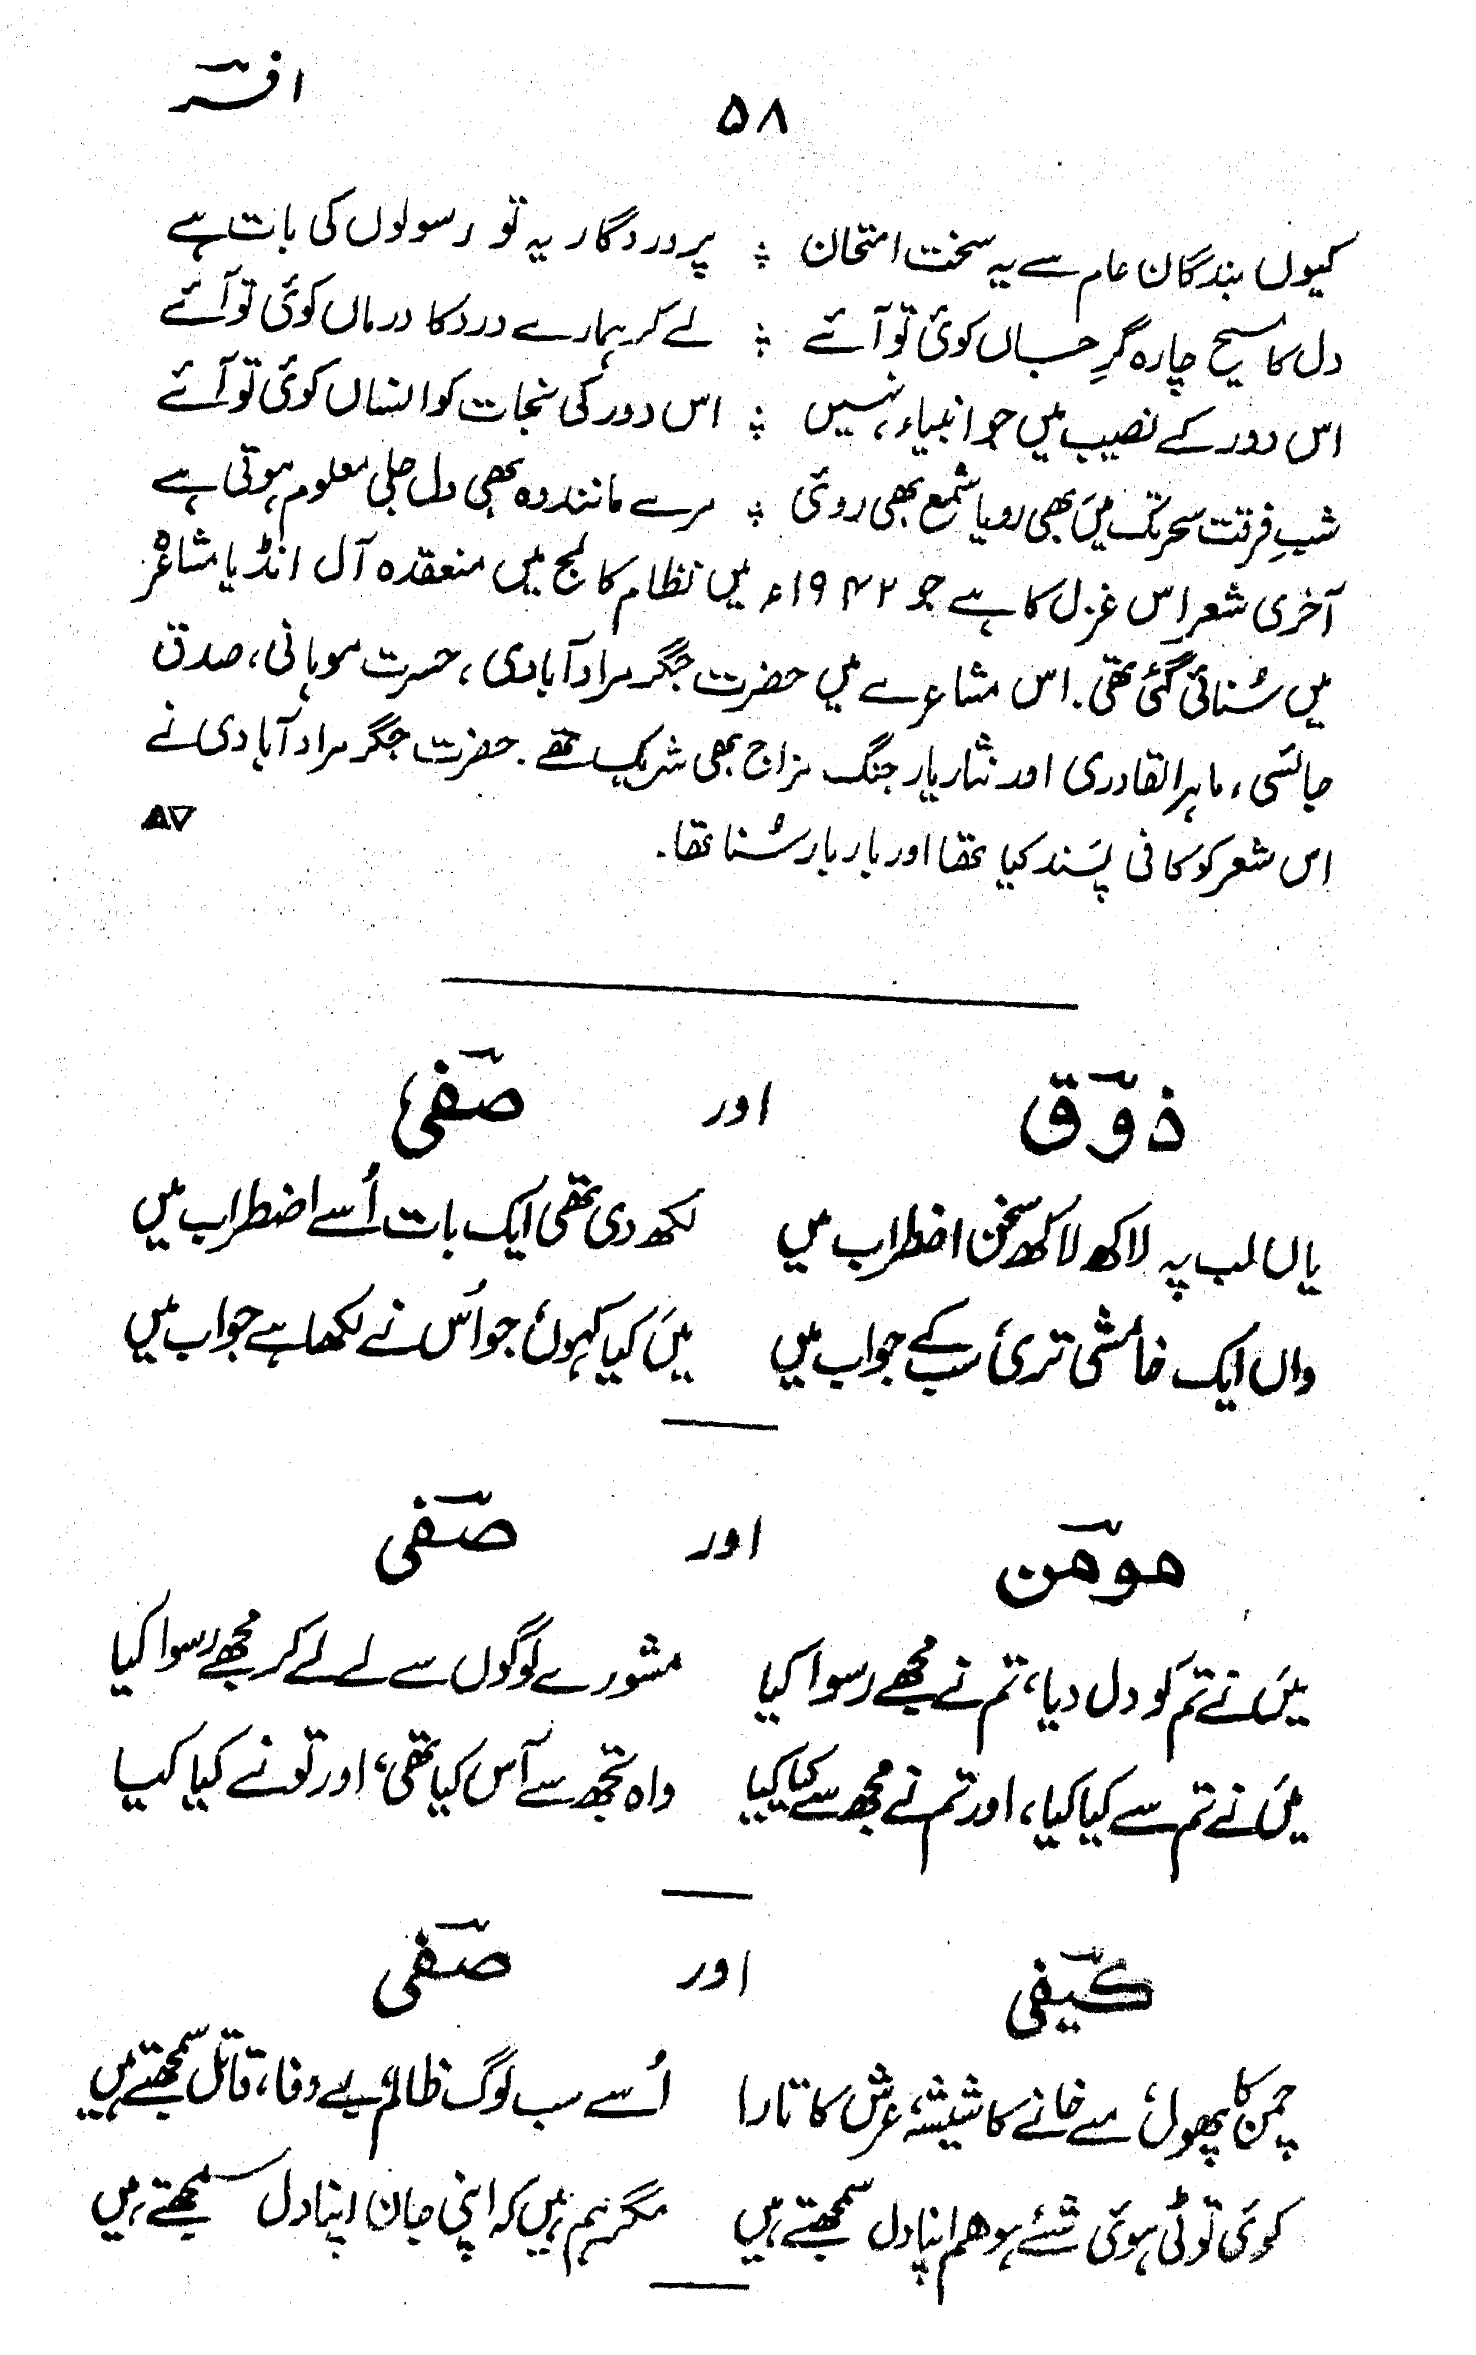 افسرؔ
۵۸
کیوں بندگان عام سے یہ سخت امتحان ؞ پروردگار یہ تو رسولوں کی بات ہے
دل کا مسیح چارہ گرِ جساں کوئی تو آئے ؞ لے کر ہمارے درد کا درماں کوئی تو آئے
اس دور کے نصیب میں جو انبیاء نہیں ؞ اس دور کی نجات کو انساں کوئی تو آئے
شبِ فرقت سحر تک میں بھی رویا شمع بھی روئی ؞ مرے مانند وہ بھی دل جلی معلوم ہوتی ہے
آخری شعر اس غزل کا ہے جو ۱۹۴۲ء میں نظام کالج میں منعقدہ آل انڈیا مشاعرْ
میں سُنائی گئی تھی۔ اس مشاعرے میں حضرت جگر مرادآبادی، حسرت موہانی، صدق
جائسی، ماہر القادری اور نثار یار جنگ مزاج بھی شریک تھے۔ حضرت جگر مرادآبادی نے
اس شعر کو کافی پسند کیا تھا اور بار بار سُنا تھا۔
ذوؔق اور صفیؔ
یاں لب پہ لاکھ لاکھ سخن اضطراب میں لکھ دی تھی ایک بات اُسے اضطراب میں
واں ایک خامشی تری سب کے جواب میں میں کیا کہوں جو اُس نے لکھا ہے جواب میں
مومؔن اور صفیؔ
میں نے تم کو دل دیا، تم نے مجھے رسوا کیا مشورے لوگوں سے لے لے کر مجھے رسوا کیا
میں نے تم سے کیا کیا، اور تم نے مجھ سے کیا کیا واہ تجھ سے آس کیا تھی، اور تو نے کیا کیا
کیفیؔ اور صفیؔ
چمن کا پھول، مے خانے کا شیشہ، عرش کا تارا اُسے سب لوگ ظالم، بے وفا، قاتل سمجھتے ہیں
کوئی ٹوٹی ہوئی شئے ہو ہم اپنا دل سمجھتے ہیں مگر ہم ہیں کہ اپنی جان اپنا دل سمجھتے ہیں